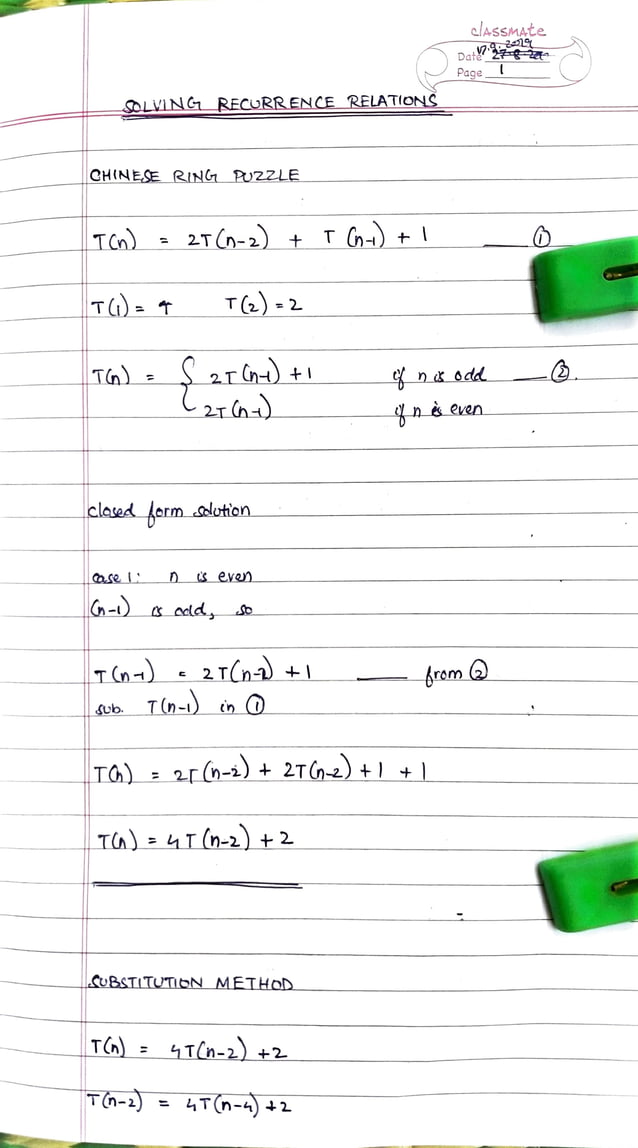 classmate
17.9.2019
Date 27-8-20
Page 1
SOLVING RECURRENCE RELATIONS
CHINESE RING PUZZLE
T(n) = 2T(n-2) + T(n-1) + 1 ——— ①
T(1) = 1 T(2) = 2
T(n) = { 2T(n-1) + 1 if n is odd —— ②.
2T(n-1) if n is even
closed form solution
case 1: n is even
(n-1) is odd, so
T(n-1) = 2T(n-2) + 1 ——— from ②
sub. T(n-1) in ①
T(n) = 2T(n-2) + 2T(n-2) + 1 + 1
T(n) = 4T(n-2) + 2
SUBSTITUTION METHOD
T(n) = 4T(n-2) + 2
T(n-2) = 4T(n-4) + 2